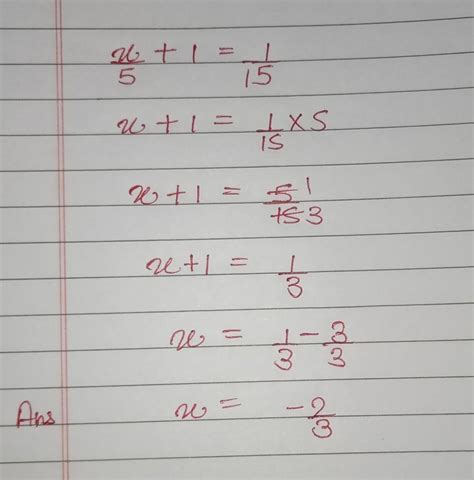 x/5 + 1 = 1/15
x + 1 = 1/15 × 5
x + 1 = 5 1/15 3
x + 1 = 1/3
x = 1/3 - 3/3
Ans x = -2/3